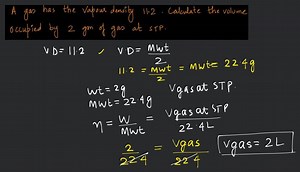 A gas has the vapour density 11.2. Calculate the volume
occupied by 2 gm of gas at STP.
VD = 11.2 , VD = Mwt/2
11.2 = Mwt/2 = Mwt = 22.4g
wt = 2g V gas at STP
Mwt = 22.4g
η = W/Mwt = V gas at STP/22.4L
2/22.4 = Vgas/22.4 Vgas = 2L